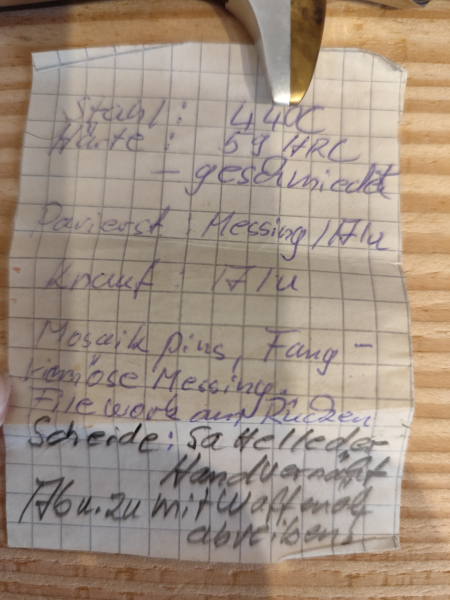 Stahl: 440C
Härte: 59 HRC
- geschmiedet
Parierst: Messing / Alu
Knauf: Alu
Mosaik pins, Fang-
riemöse Messing.
Filework am Rücken
Scheide: Sattelleder
Handvernäht
Ab u. zu mit Waffenöl
abreiben